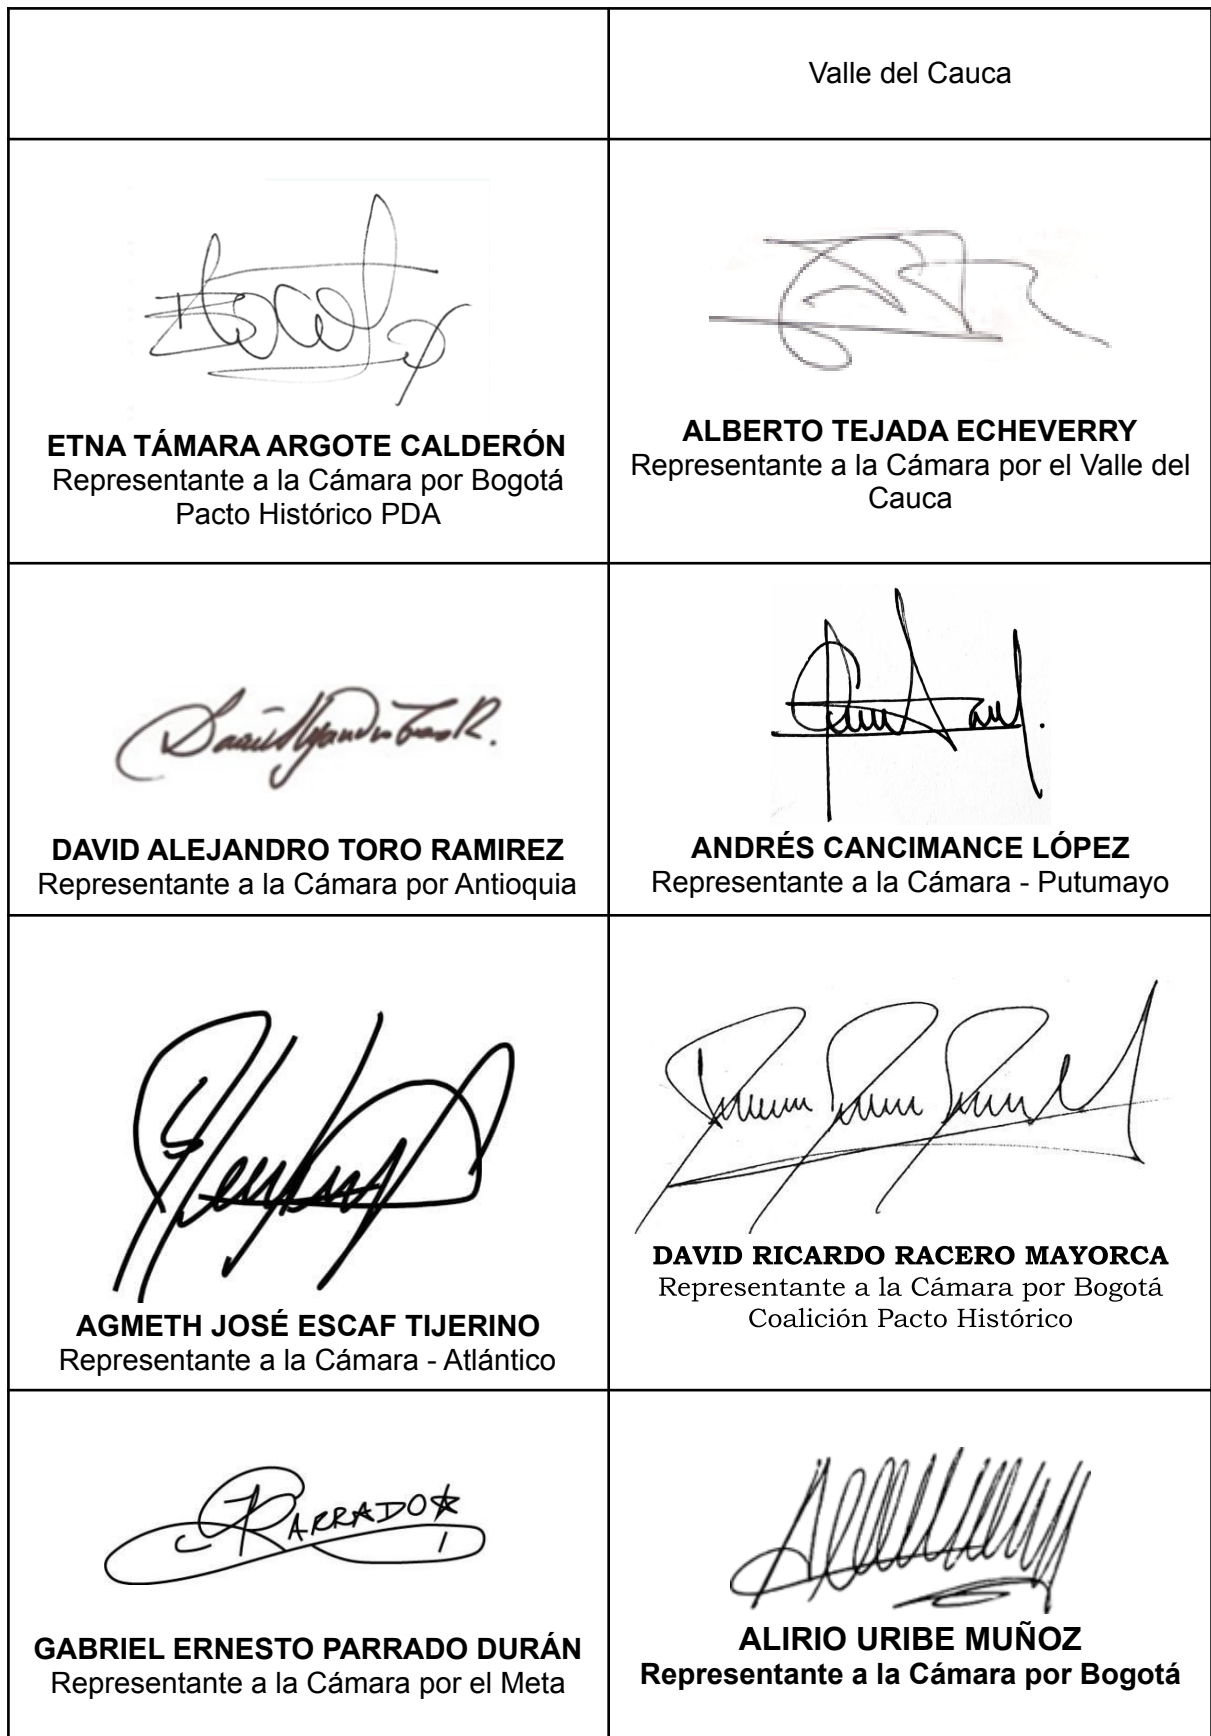 Valle del Cauca
ETNA TÁMARA ARGOTE CALDERÓN
Representante a la Cámara por Bogotá
Pacto Histórico PDA
ALBERTO TEJADA ECHEVERRY
Representante a la Cámara por el Valle del
Cauca
David Alejandro Toro R.
DAVID ALEJANDRO TORO RAMIREZ
Representante a la Cámara por Antioquia
ANDRÉS CANCIMANCE LÓPEZ
Representante a la Cámara - Putumayo
AGMETH JOSÉ ESCAF TIJERINO
Representante a la Cámara - Atlántico
DAVID RICARDO RACERO MAYORCA
Representante a la Cámara por Bogotá
Coalición Pacto Histórico
PARRADO
GABRIEL ERNESTO PARRADO DURÁN
Representante a la Cámara por el Meta
ALIRIO URIBE MUÑOZ
Representante a la Cámara por Bogotá